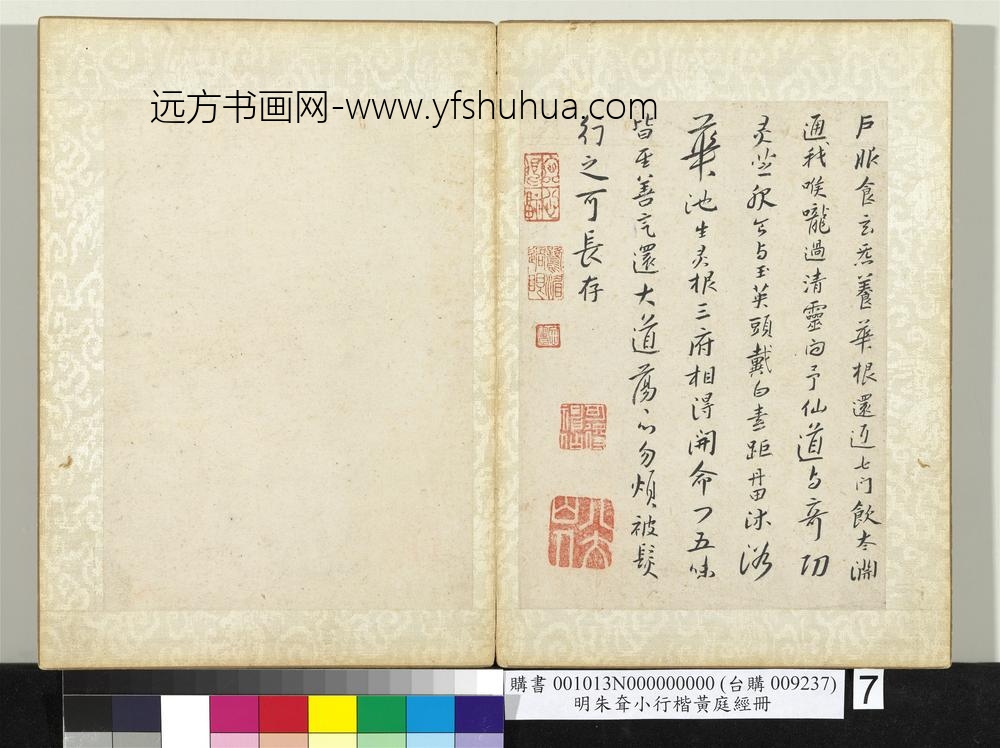 远方书画网-www.yfshuhua.com
戶服食玄炁養華根還返七门飲太淵
通我喉嚨過清靈向予仙道与奇功
灵芝及与玉英頭戴白素距丹田沐浴
華池生灵根三府相得開命门五味
皆至善氣還大道蕩心勿煩被髮
行之可長存
購書 001013N000000000 (台購 009237)
明朱耷小行楷黃庭經冊
7